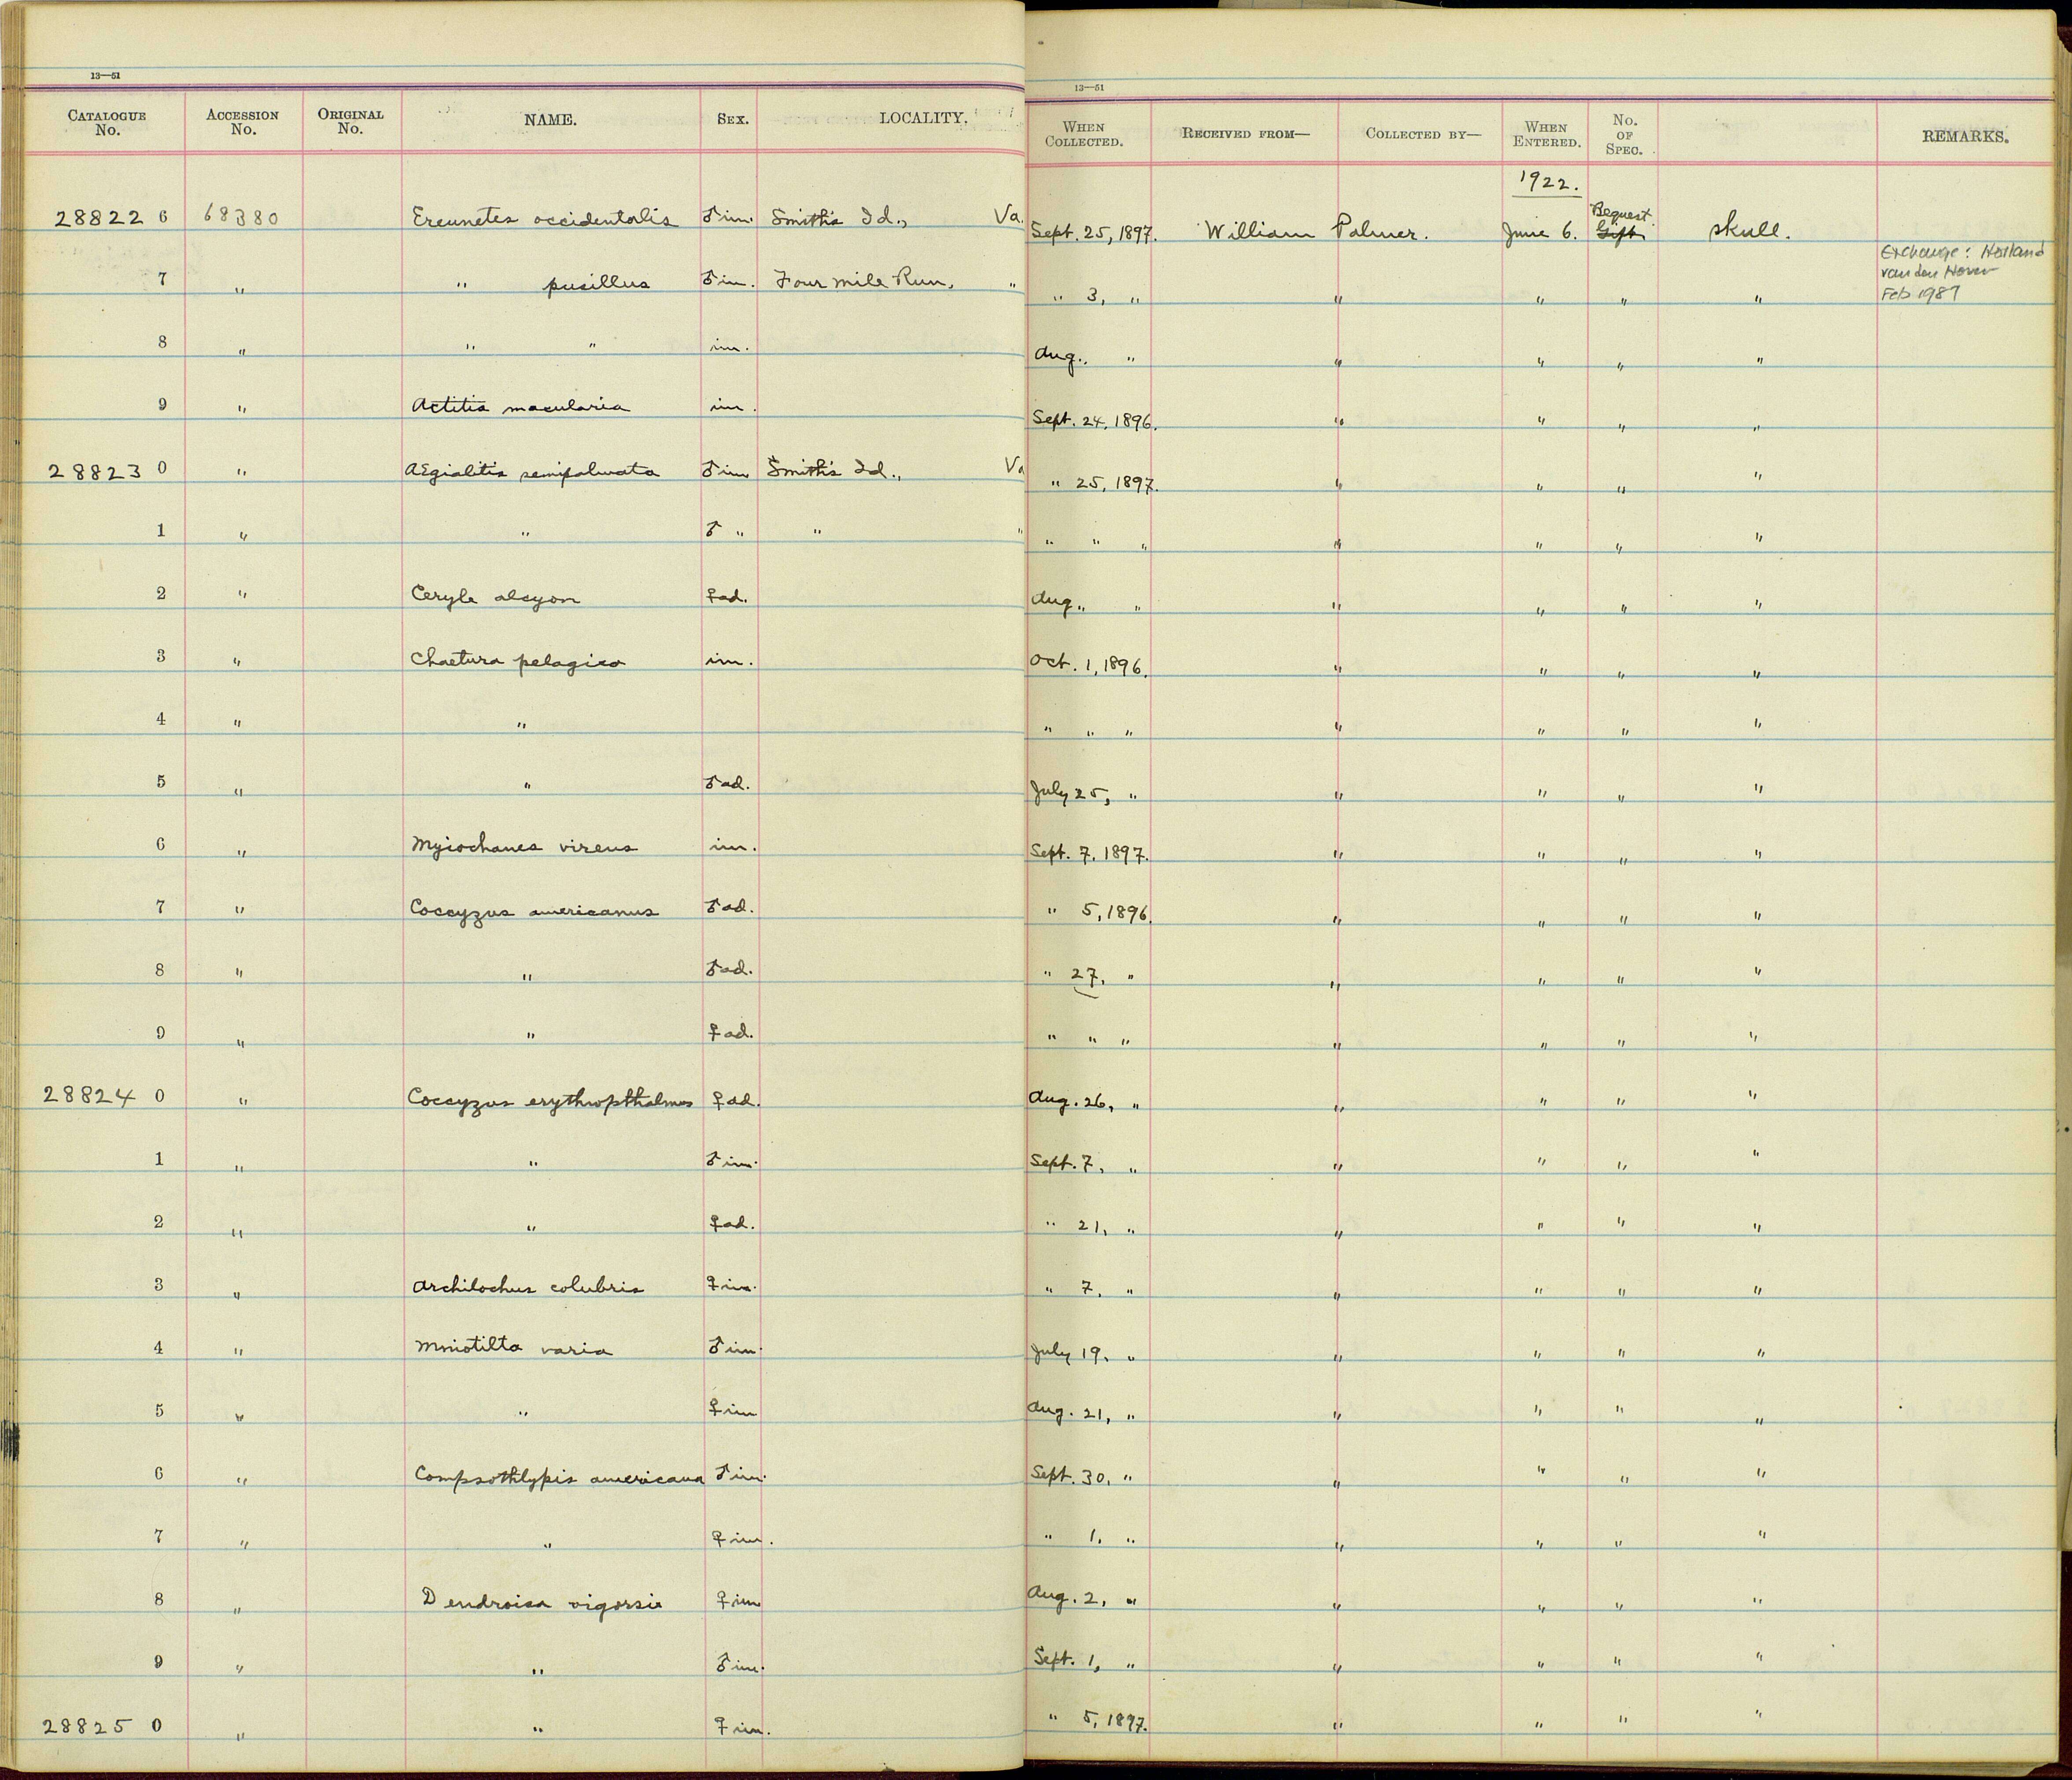 13—51
CATALOGUE No. ACCESSION No. ORIGINAL No. NAME. SEX. LOCALITY.
13—51
WHEN COLLECTED. RECEIVED FROM— COLLECTED BY— WHEN ENTERED. No. OF SPEC. REMARKS.
1922.
28822 6 68380 Ereunetes occidentalis ♂ im. Smith's Id., Va. Sept. 25, 1897. William Palmer. June 6. Bequest Gift. skull.
7 " " pusillus ♂ im. Four mile Run, " " 3, " " " " " Exchange: Holland
van den Hover
Feb 1987
8 " " " im. Aug. " " " " "
9 " Actitis macularia im. Sept. 24, 1896. " " " "
28823 0 " AEgialitis semipalmata ♂ im Smith's Id., Va " 25, 1897. " " " "
1 " " ♂ " " " " " " " " " "
2 " Ceryle alcyon ♀ ad. Aug. " " " " " "
3 " Chaetura pelagica im. Oct. 1, 1896. " " " "
4 " " " " " " " " "
5 " " ♂ ad. July 25, " " " " "
6 " Myiochanes virens im. Sept. 7, 1897. " " " "
7 " Coccyzus americanus ♂ ad. " 5, 1896. " " " "
8 " " ♂ ad. " 27, " " " " "
9 " " ♀ ad. " " " " " " "
28824 0 " Coccyzus erythropthalmus ♀ ad. Aug. 26, " " " " "
1 " " ♂ im. Sept. 7, " " " " "
2 " " ♀ ad. " 21, " " " " "
3 " Archilochus colubris ♀ im. " 7, " " " " "
4 " Mniotilta varia ♂ im. July 19, " " " " "
5 " " ♀ im Aug. 21, " " " " "
6 " Compsothlypis americana ♂ im. Sept. 30, " " " " "
7 " " ♀ im. " 1, " " " " "
8 " Dendroica vigorsii ♀ im Aug. 2, " " " " "
9 " " ♂ im. Sept. 1, " " " " "
28825 0 " " ♀ im. " 5, 1897. " " " "